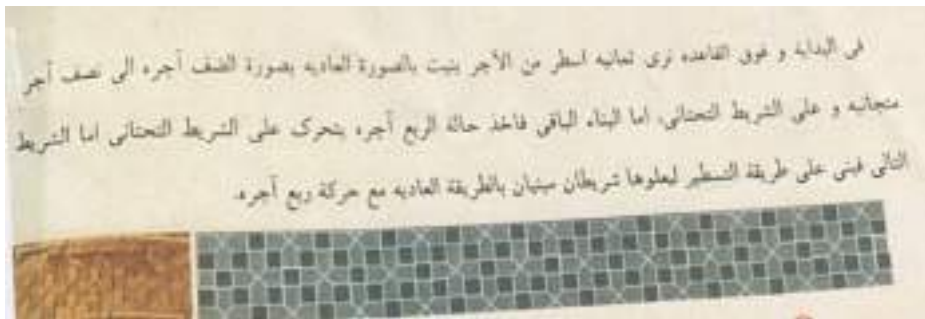 فى البداية و فوق القاعده نرى ثمانيه اسطر من الآجر بنيت بالصورة العاديه بصورة النصف آجره الى نصف آجر
متجانبه و على الشريط التحتانى. اما البناء الباقى فاخذ حالة الربع آجره يتحرك على الشريط التحتانى اما الشريط
التالى فبنى على طريقة التسطير ليعلوها شريطان مبنيان بالطريقة العاديه مع حركة ربع آجره.